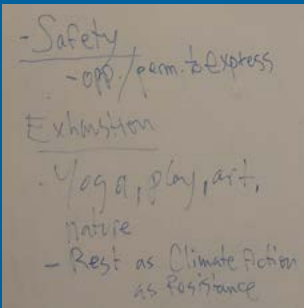 - Safety
- opp./perm. to express
Exhaustion
- Yoga, play, art,
nature
- Rest as Climate Action
as Resistance